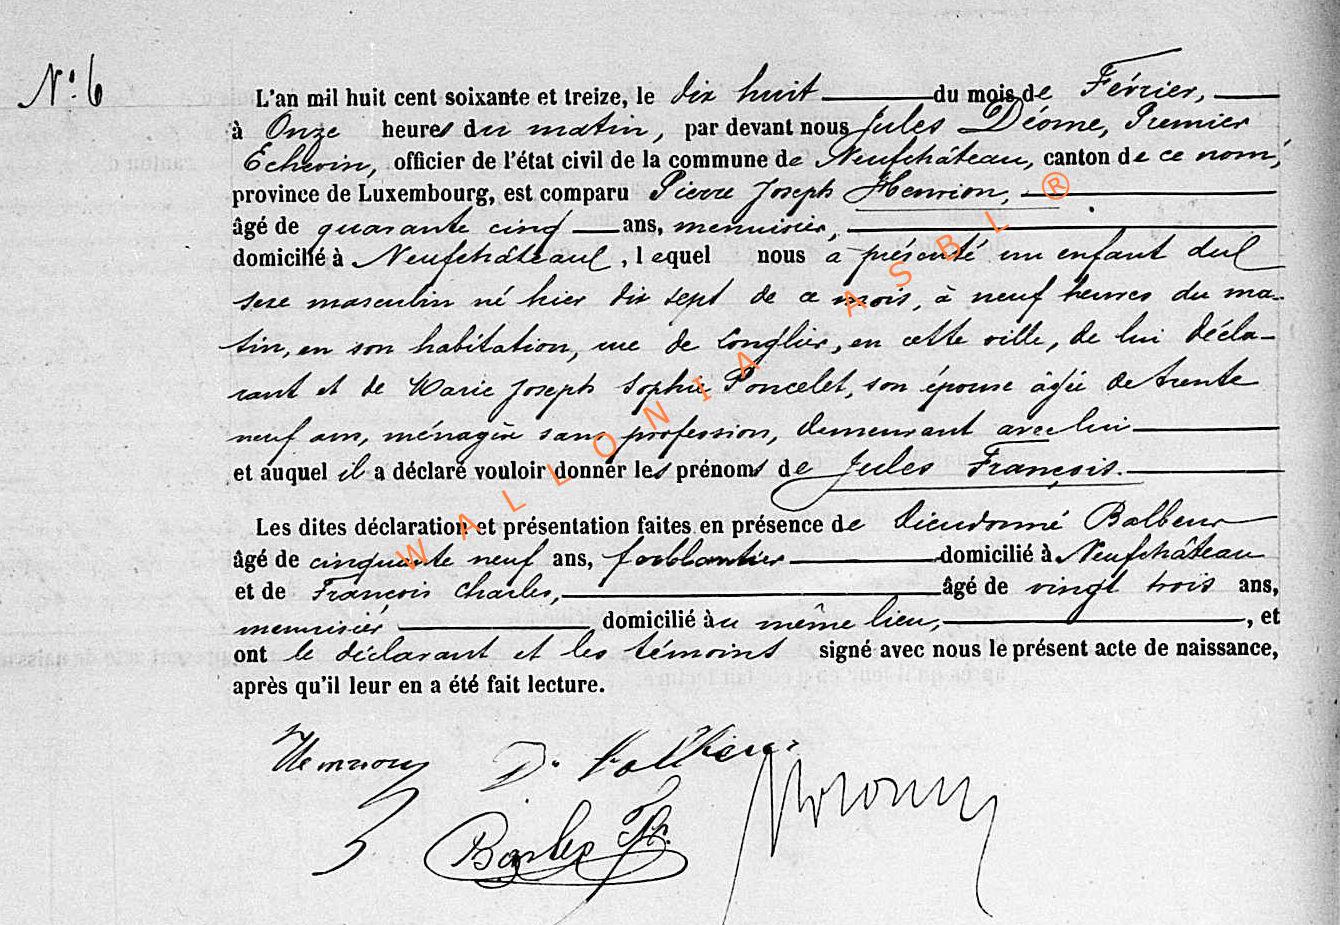 N° 6
L'an mil huit cent soixante et treize, le dix huit du mois de Février,
à Onze heures du matin, par devant nous Jules Déome, Premier
Echevin, officier de l'état civil de la commune de Neufchâteau, canton de ce nom,
province de Luxembourg, est comparu Pierre Joseph Henrion,
âgé de quarante cinq ans, menuisier,
domicilié à Neufchâteau, lequel nous a présenté un enfant du
sexe masculin né hier dix sept de ce mois, à neuf heures du ma-
tin, en son habitation, rue de Longlier, en cette ville, de lui décla-
rant et de Marie Joseph Sophie Poncelet, son épouse âgée de trente
neuf ans, ménagère sans profession, demeurant avec lui
et auquel il a déclaré vouloir donner les prénoms de Jules François.
Les dites déclaration et présentation faites en présence de Dieudonné Balbeur
âgé de cinquante neuf ans, ferblantier domicilié à Neufchâteau
et de François Charles, âgé de vingt trois ans,
menuisier domicilié au même lieu, et
ont le déclarant et les témoins signé avec nous le présent acte de naissance,
après qu'il leur en a été fait lecture.
Henrion D.
WALLONIA ASBL ®